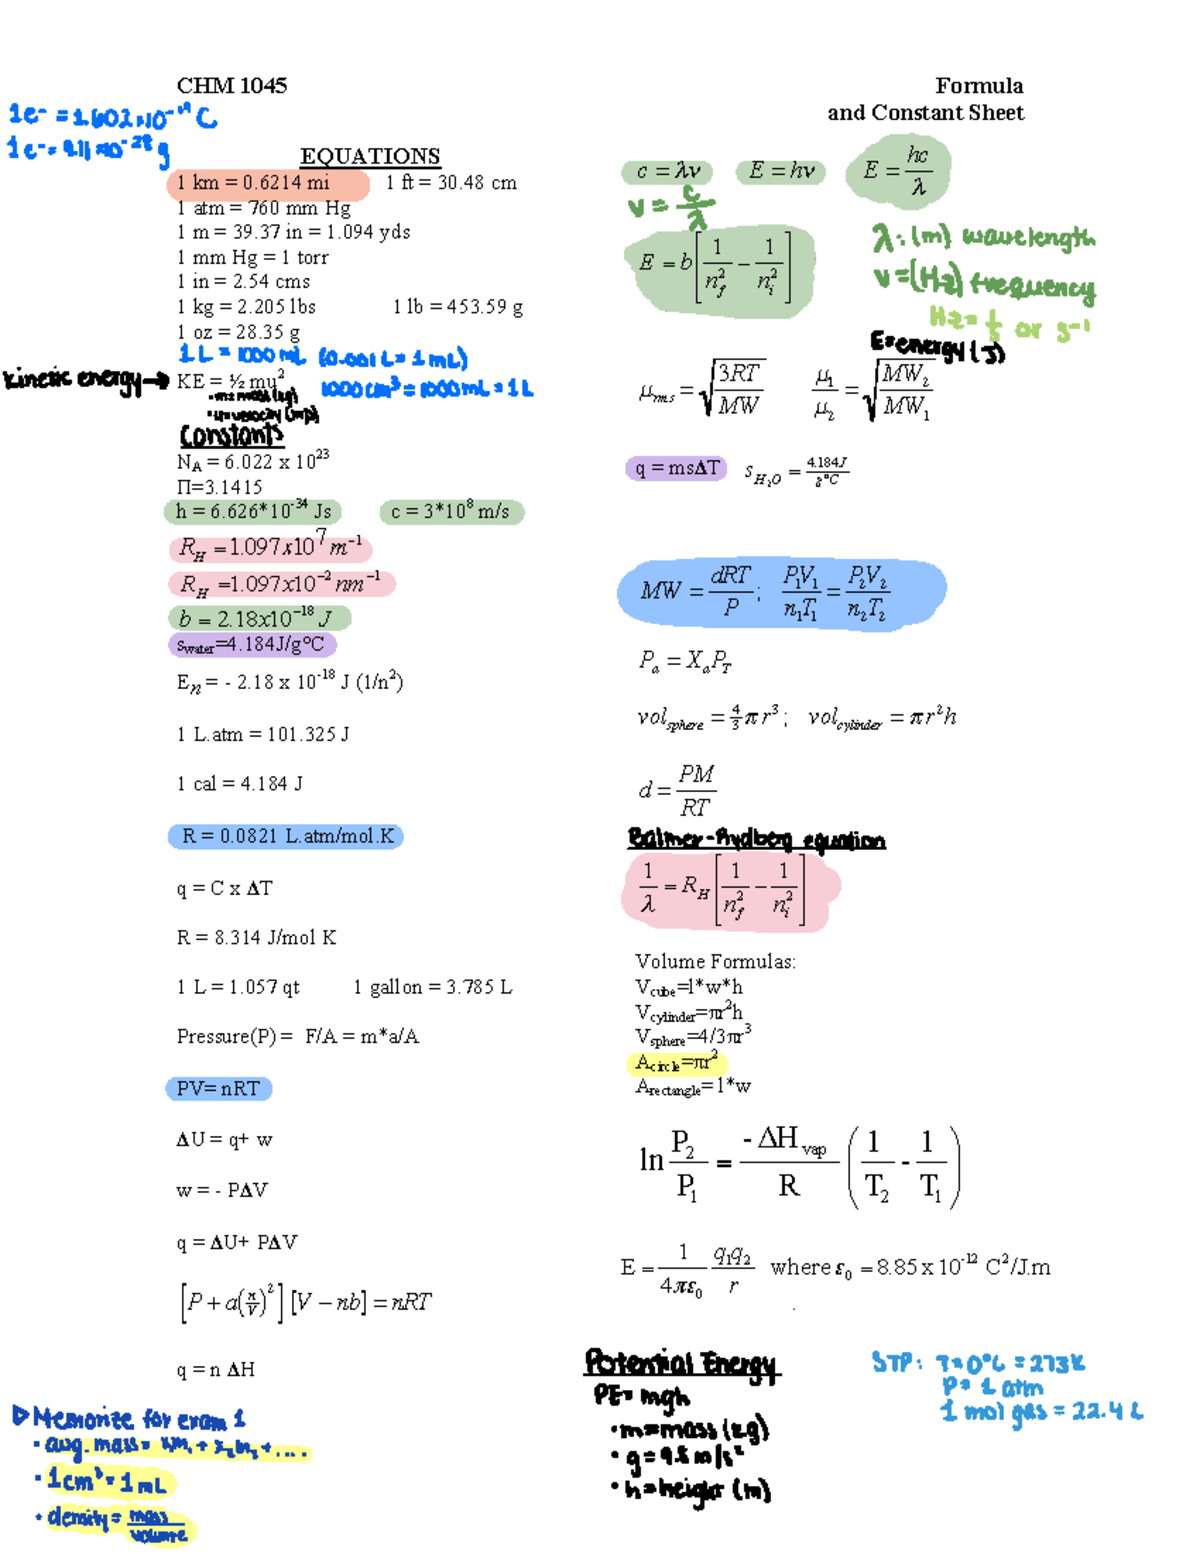 CHM 1045
Formula
and Constant Sheet
1e- = 1.602x10^-19 C
1e- = 9.11x10^-28 g
EQUATIONS
1 km = 0.6214 mi 1 ft = 30.48 cm
1 atm = 760 mm Hg
1 m = 39.37 in = 1.094 yds
1 mm Hg = 1 torr
1 in = 2.54 cms
1 kg = 2.205 lbs 1 lb = 453.59 g
1 oz = 28.35 g
1 L = 1000 mL (0.001 L = 1 mL)
Kinetic energy → KE = ½ mu² 1000 cm³ = 1000 mL = 1 L
• m = mass (kg)
• u = velocity (m/s)
Constants
N_A = 6.022 x 10^23
Π=3.1415
h = 6.626*10^-34 Js c = 3*10^8 m/s
R_H = 1.097x10^7 m^-1
R_H = 1.097x10^-2 nm^-1
b = 2.18x10^-18 J
s_water=4.184J/g°C
E_n = - 2.18 x 10^-18 J (1/n²)
1 L.atm = 101.325 J
1 cal = 4.184 J
R = 0.0821 L.atm/mol.K
q = C x ΔT
R = 8.314 J/mol K
1 L = 1.057 qt 1 gallon = 3.785 L
Pressure(P) = F/A = m*a/A
PV= nRT
ΔU = q+ w
w = - PΔV
q = ΔU+ PΔV
[P + a(n/V)²] [V − nb] = nRT
q = n ΔH
▷ Memorize for exam 1
• avg. mass = x₁m₁ + x₂m₂ + ....
• 1 cm³ = 1 mL
• density = mass/volume
c = λν E = hν E = hc/λ
ν = c/λ
E = b[1/n_f² − 1/n_i²]
λ: (m) wavelength
ν = (Hz) frequency
Hz = 1/s or s^-1
E = energy (J)
μ_rms = √(3RT/MW) μ₁/μ₂ = √(MW₂/MW₁)
q = msΔT s_H₂O = 4.184J/g°C
MW = dRT/P ; P₁V₁/n₁T₁ = P₂V₂/n₂T₂
P_a = X_aP_T
vol_sphere = 4/3 π r³ ; vol_cylinder = π r²h
d = PM/RT
Balmer-Rydberg equation
1/λ = R_H [1/n_f² − 1/n_i²]
Volume Formulas:
V_cube=l*w*h
V_cylinder=πr²h
V_sphere=4/3πr³
A_circle=πr²
A_rectangle=l*w
ln P₂/P₁ = - ΔH_vap/R (1/T₂ - 1/T₁)
E = 1/4πε₀ q₁q₂/r where ε₀ = 8.85 x 10^-12 C²/J.m
Potential Energy
PE = mgh
• m = mass (kg)
• g = 9.8 m/s²
• h = height (m)
STP: T = 0°C = 273 K
P = 1 atm
1 mol gas = 22.4 L